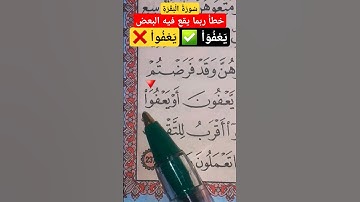 سورة البقرة
خطأ ربما يقع فيه البعض
يَعْفُوَاْ ✅ يَعْفُواْ ❌
هُنَّ وَقَدْ فَرَضْتُمْ
يَعْفُونَ أَوْ يَعْفُوَاْ
أَقْرَبُ لِلتَّقْ
تَعْمَلُونَ